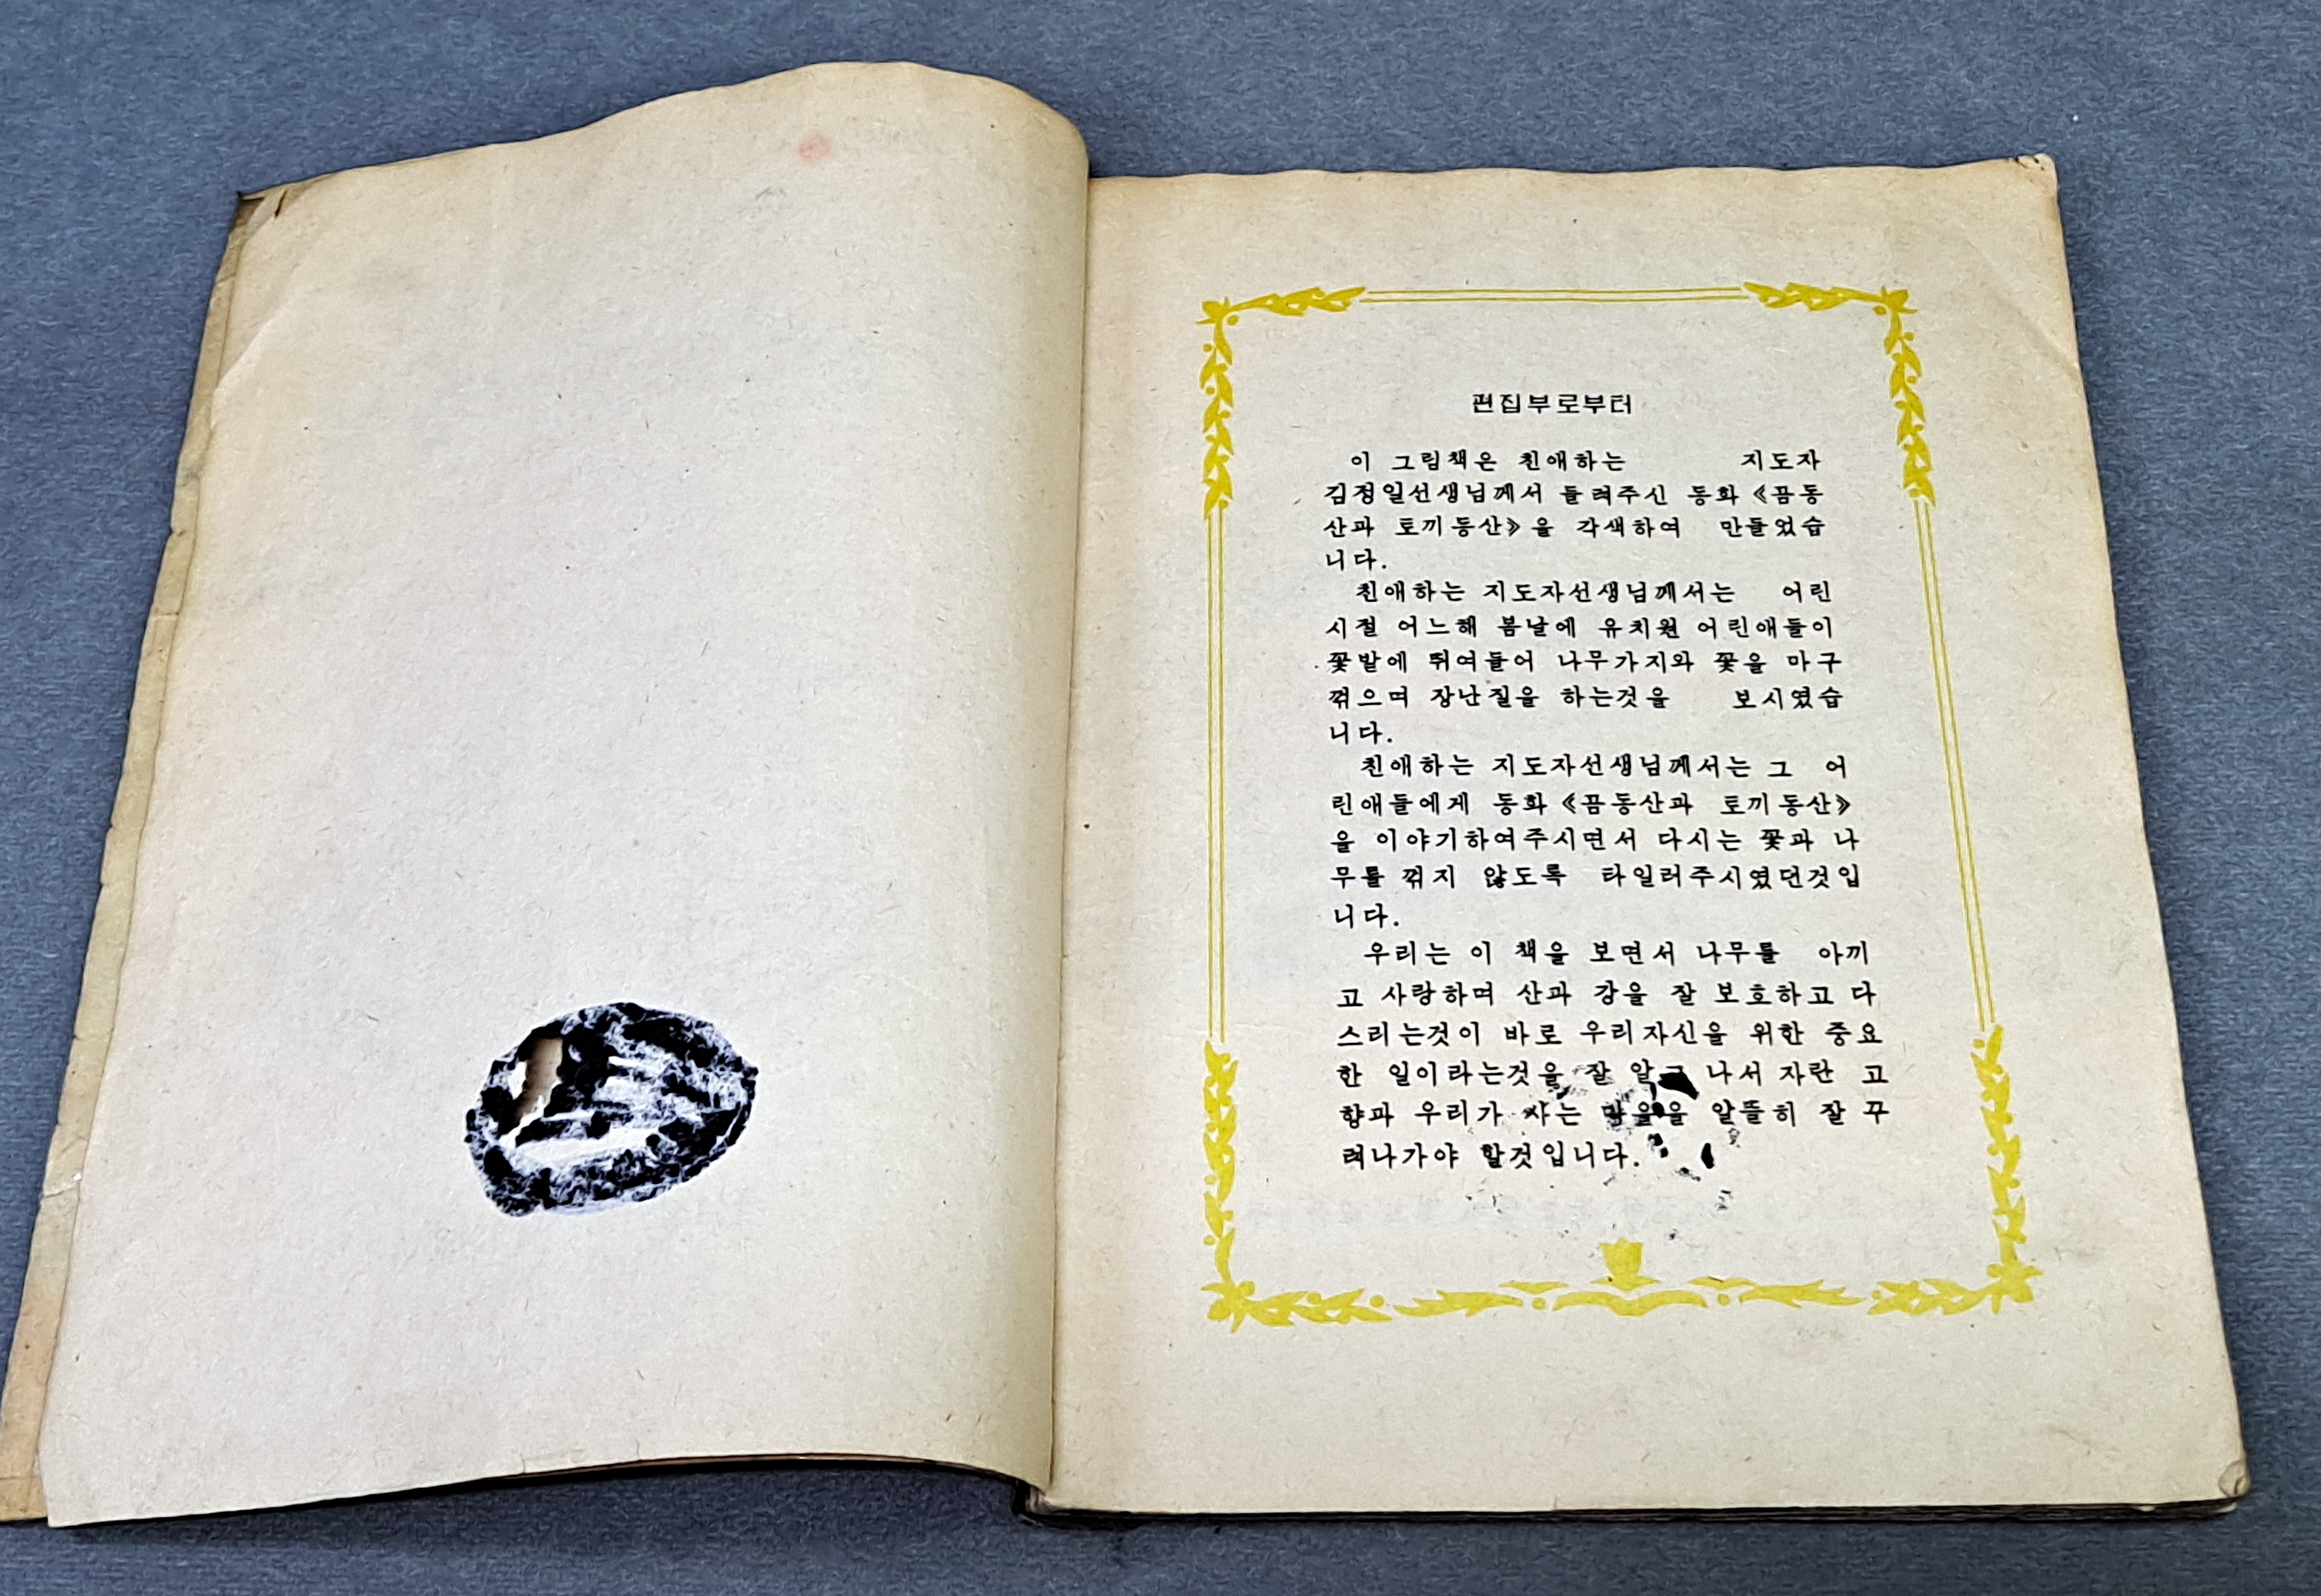 편집부로부터
이 그림책은 친애하는 지도자
김정일선생님께서 들려주신 동화 《곰동
산과 토끼동산》을 각색하여 만들었습
니다.
친애하는 지도자선생님께서는 어린
시절 어느해 봄날에 유치원 어린애들이
꽃밭에 뛰여들어 나무가지와 꽃을 마구
꺾으며 장난질을 하는것을 보시였습
니다.
친애하는 지도자선생님께서는 그 어
린애들에게 동화 《곰동산과 토끼동산》
을 이야기하여주시면서 다시는 꽃과 나
무를 꺾지 않도록 타일러주시였던것입
니다.
우리는 이 책을 보면서 나무를 아끼
고 사랑하며 산과 강을 잘 보호하고 다
스리는것이 바로 우리자신을 위한 중요
한 일이라는것을 잘 알고 나서 자란 고
향과 우리가 사는 마을을 알뜰히 잘 꾸
려나가야 할것입니다.